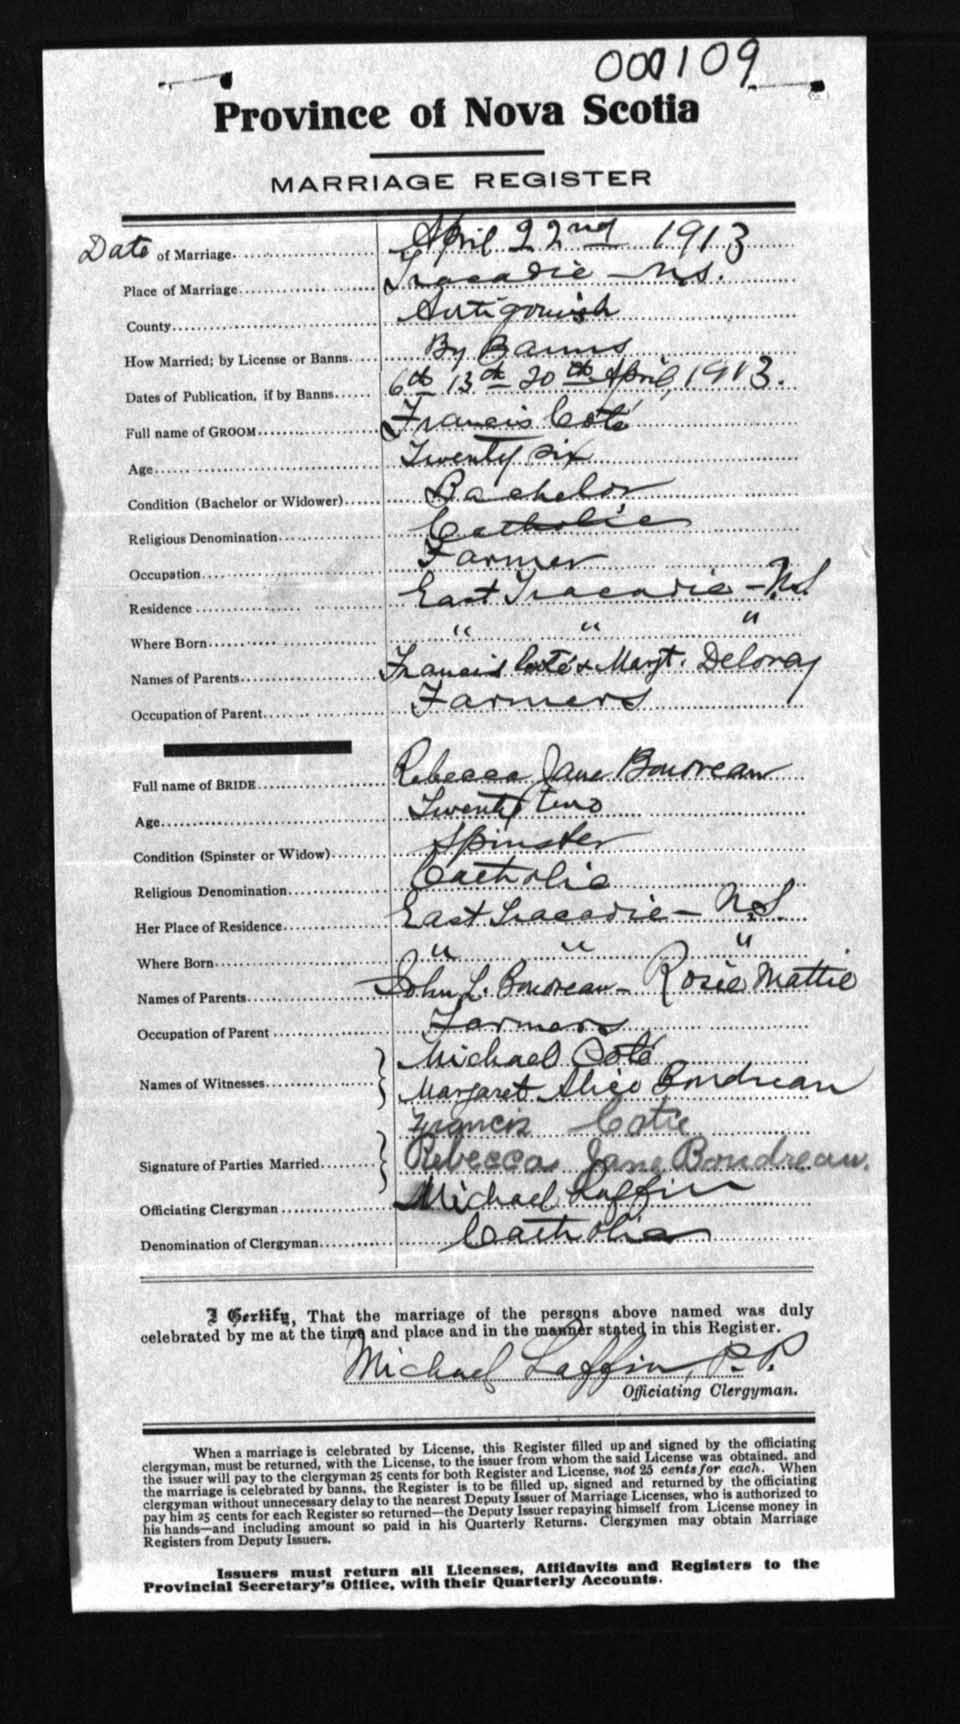 000109
Province of Nova Scotia
MARRIAGE REGISTER
Date of Marriage April 22nd 1913
Place of Marriage Tracadie - N.S.
County Antigonish
How Married; by License or Banns By Banns
Dates of Publication, if by Banns 6th 13th 20th April, 1913.
Full name of GROOM Francis Coté
Age Twenty six
Condition (Bachelor or Widower) Bachelor
Religious Denomination Catholic
Occupation Farmer
Residence East Tracadie - N.S.
Where Born " " "
Names of Parents Francis Coté & Margt. Deloray
Occupation of Parent Farmers
Full name of BRIDE Rebecca Jane Boudreau
Age Twenty two
Condition (Spinster or Widow) Spinster
Religious Denomination Catholic
Her Place of Residence East Tracadie - N.S.
Where Born " " "
Names of Parents John L. Boudreau - Rosie Mattie
Occupation of Parent Farmers
Michael Coté
Names of Witnesses Margaret Alice Boudreau
Francis Cotie
Signature of Parties Married Rebecca Jane Boudreau.
Officiating Clergyman Michael Laffin
Denomination of Clergyman Catholic
I Certify, That the marriage of the persons above named was duly
celebrated by me at the time and place and in the manner stated in this Register.
Michael Laffin, P.P.
Officiating Clergyman.
When a marriage is celebrated by License, this Register filled up and signed by the officiating
clergyman, must be returned, with the License, to the issuer from whom the said License was obtained, and
the issuer will pay to the clergyman 25 cents for both Register and License, not 25 cents for each. When
the marriage is celebrated by banns, the Register is to be filled up, signed and returned by the officiating
clergyman without unnecessary delay to the nearest Deputy Issuer of Marriage Licenses, who is authorized to
pay him 25 cents for each Register so returned—the Deputy Issuer repaying himself from License money in
his hands—and including amount so paid in his Quarterly Returns. Clergymen may obtain Marriage
Registers from Deputy Issuers.
Issuers must return all Licenses, Affidavits and Registers to the
Provincial Secretary's Office, with their Quarterly Accounts.